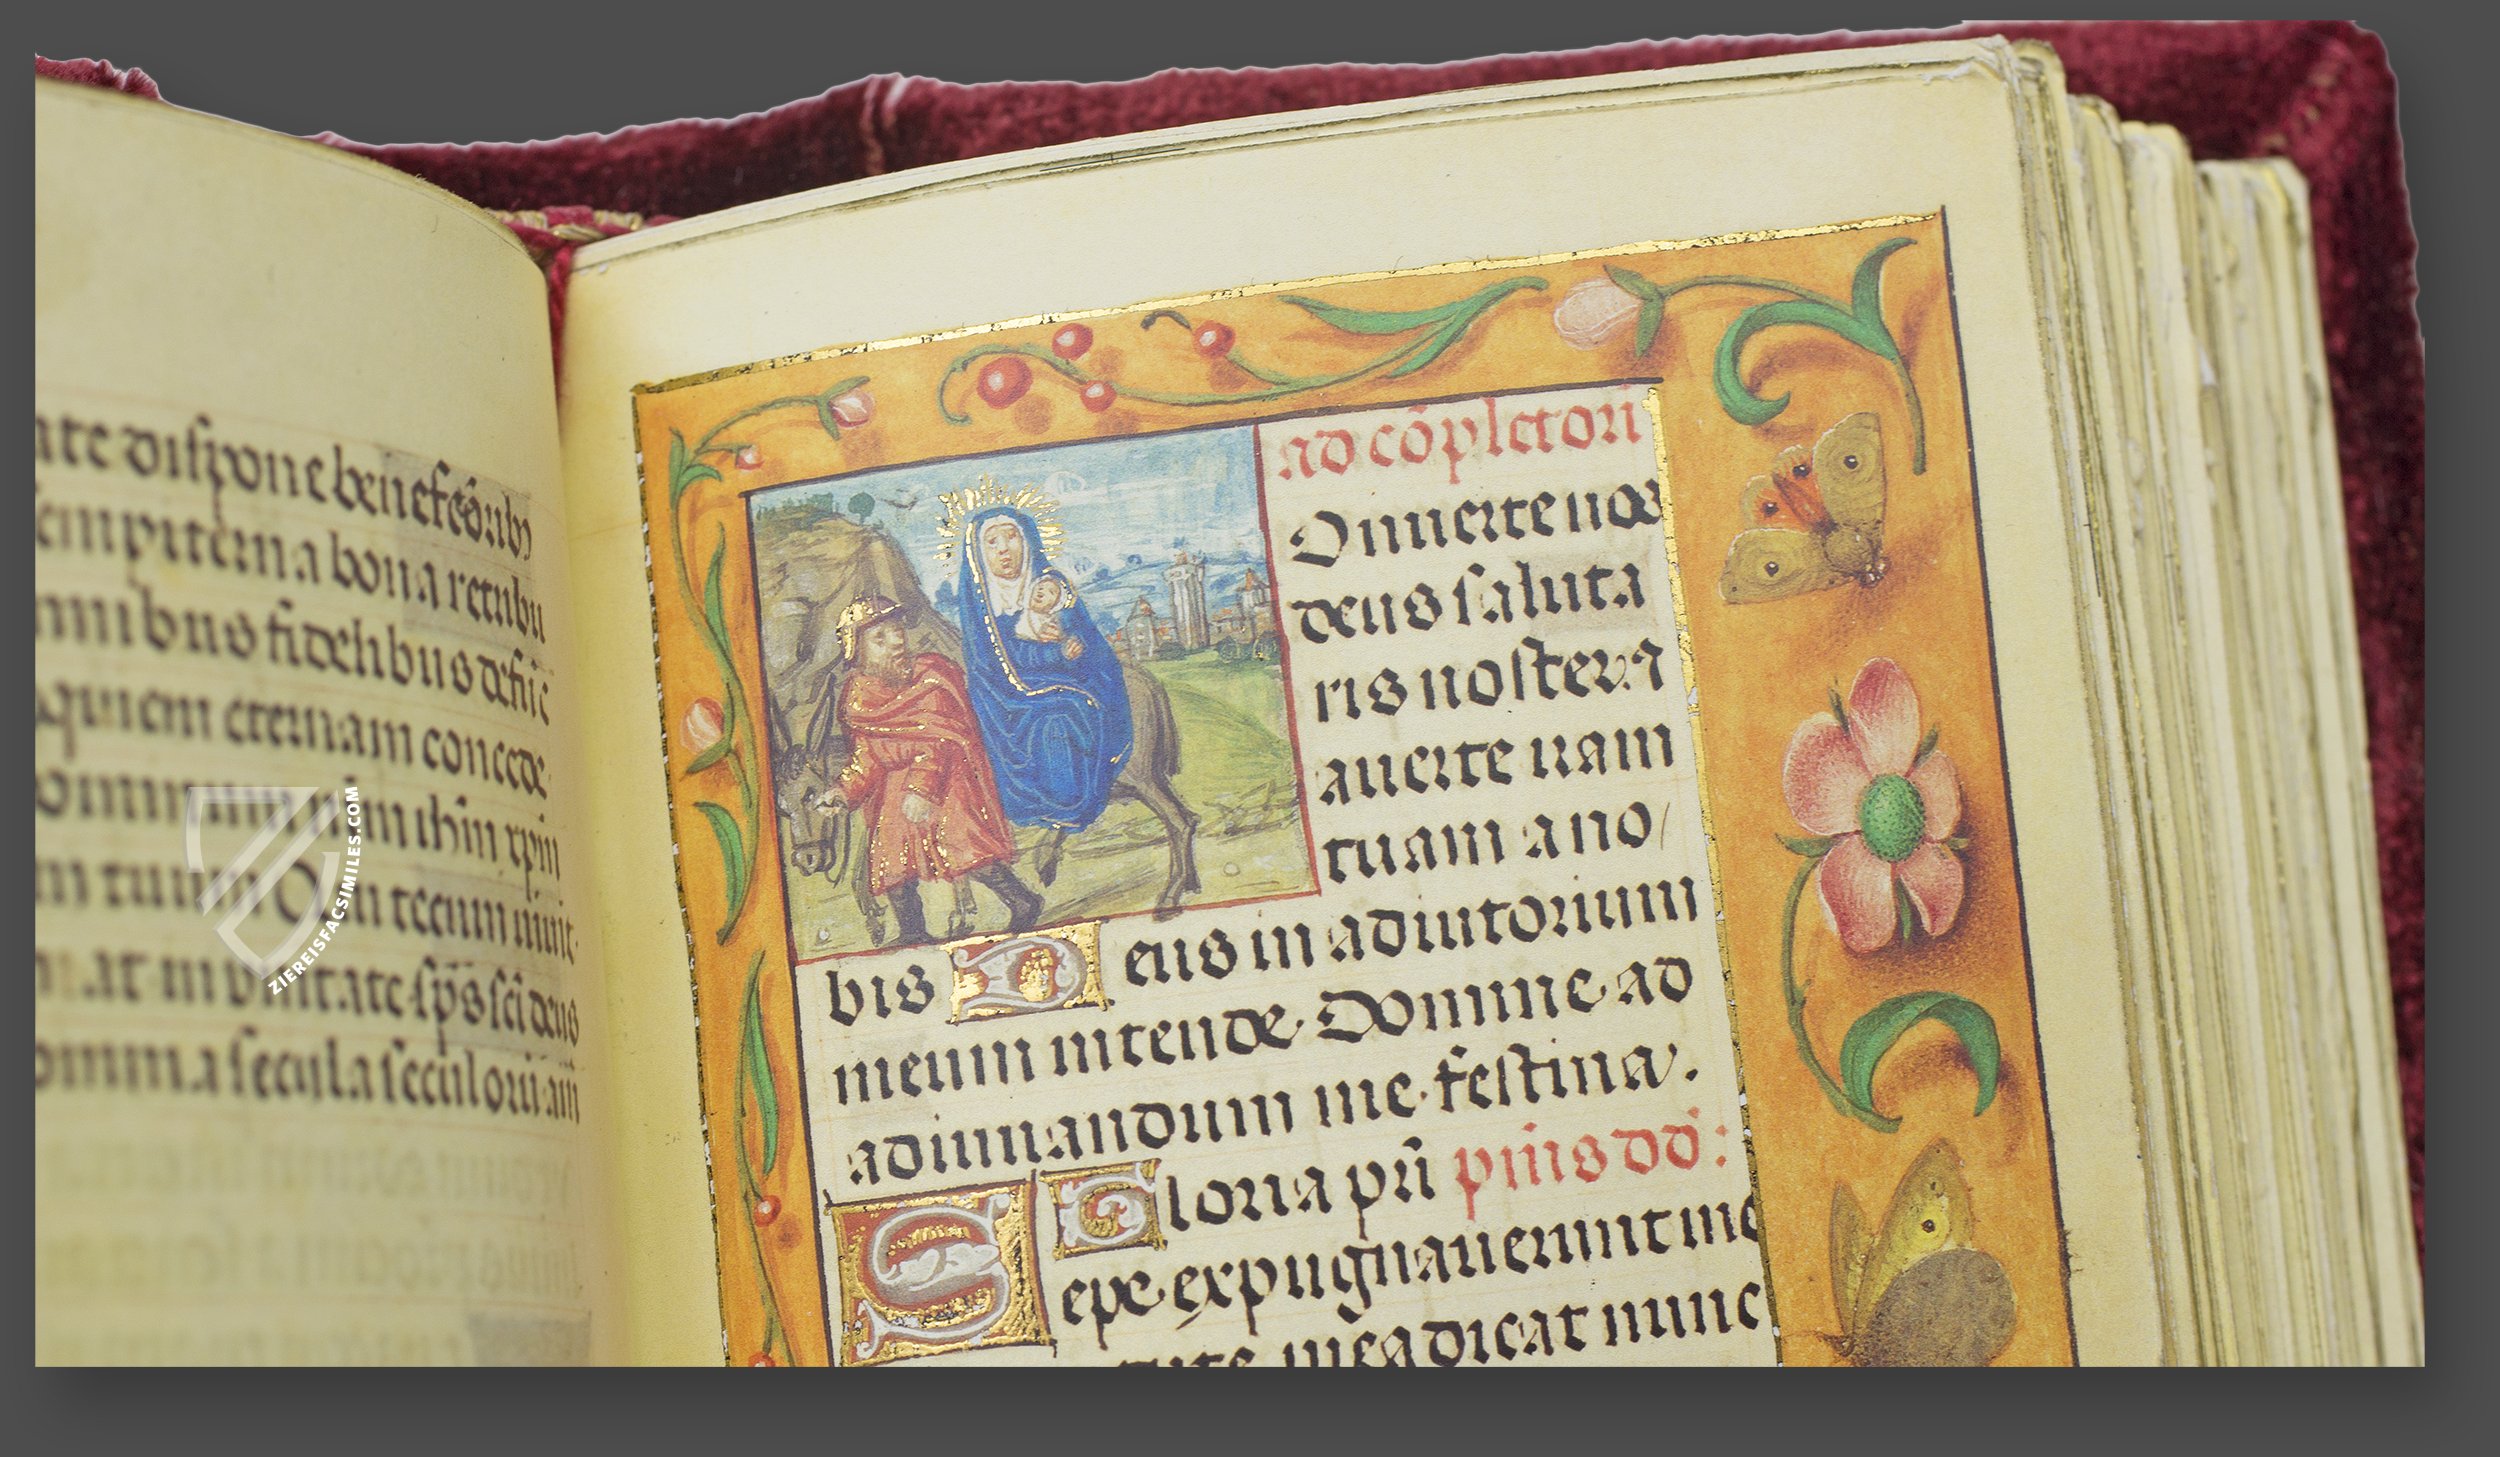 ate dispone benefcōribꝰ
sempiterna bona retribu
omnibus fidelibus defūc
requiem eternam concede
dominum nr̄m ihm̄ xpm̄
m tuum Qui tecum viuit
at in vnitate sp̄s sc̄i deus
omnia secula seculoru am
ZIEREISFACSIMILES.COM
ad cōpletori
Onuerte nos
deus saluta
ris noster ⁊
auerte iram
tuam a no/
bis Deus in adiutorium
meum intende Domine ad
adiuuandum me festina.
Gloria pr̄i pm̄s dd̄:
Sepe expugnauerunt me
mea dicat nunc